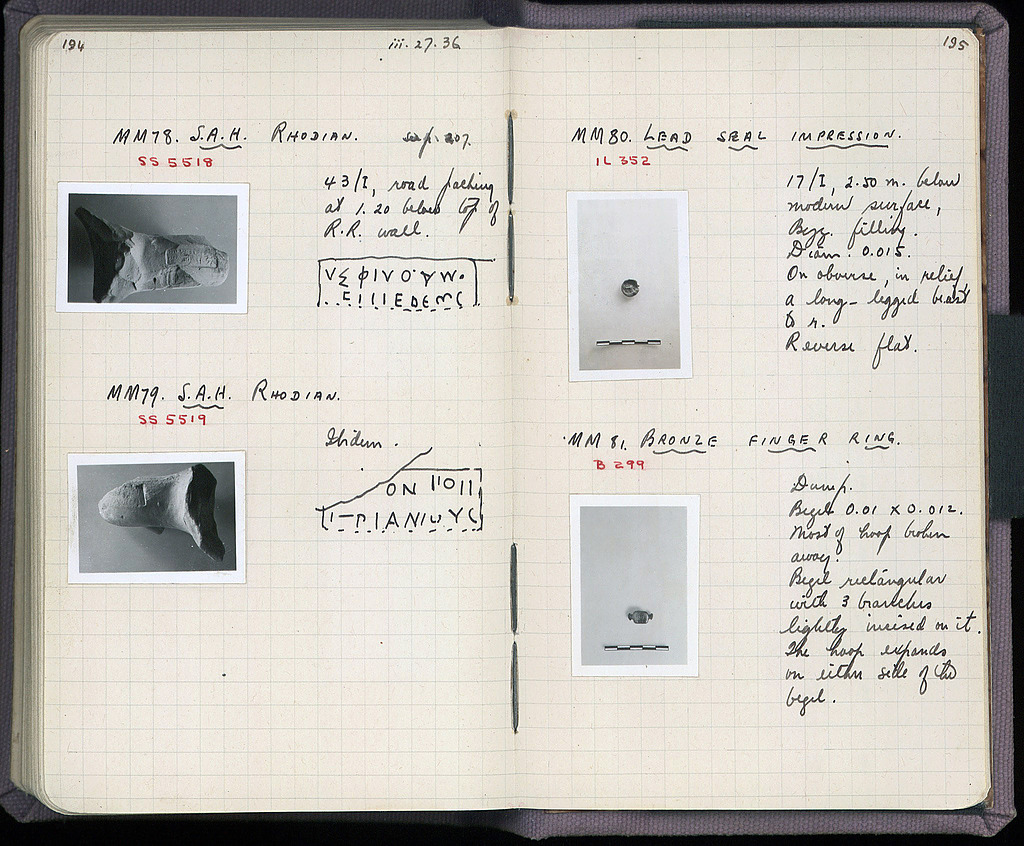 194
iii. 27. 36
MM78. S.A.H. RHODIAN.
SS 5518
43/I, road packing
at 1.20 below top of
R.R. wall.
MM79. S.A.H. RHODIAN.
SS 5519
Ibidem.
ON
195
MM80. LEAD SEAL IMPRESSION.
IL 352
17/I, 2.50 m. below
modern surface,
Byz. filling.
Diam. 0.015.
On obverse, in relief,
a long-legged beast
to r.
Reverse flat.
MM 81. BRONZE FINGER RING.
B 299
Dump.
Bezel 0.01 X 0.012.
Most of hoop broken
away.
Bezel rectangular
with 3 branches
lightly incised on it.
The hoop expands
on either side of the
bezel.